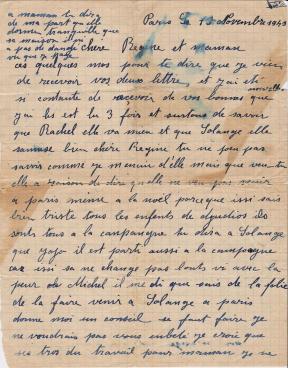 a maman tu dira
de ma part quelle
dorme tranquille que
sa maison il ny
a pas de danger
Paris le 13 Novembre 1943
chere Regine et maman
ces quelques mos pour te dire que je vien
de recevoir vos deux lettre et j'ai eté
si contante de recevoir de vos bonnes nouvelle que
j'ai les est lu 3 fois et surtous de savoir
que Rachel elle va mieu et que Solange elle
samuse bien chere Regine tu ne peu pas
savoir comme je menuie d'elle mais que veu tu
elle a raison de dire quelle ne veu pas venir
a paris meme a la noël parceque issi sais
bien triste tous les enfants de
sonts tous a la campangne tu dira a Solange
que jojo il est partis aussi a la campagne
car issi sa ne change pas louis vi avec la
peur de Michel il me di que sais de la folie
de la faire venir a Solange a paris
donne moi un conseil se faut faire je
ne voudrais pas vous enbeté je croie que
ses tros du travail pour maman je ne